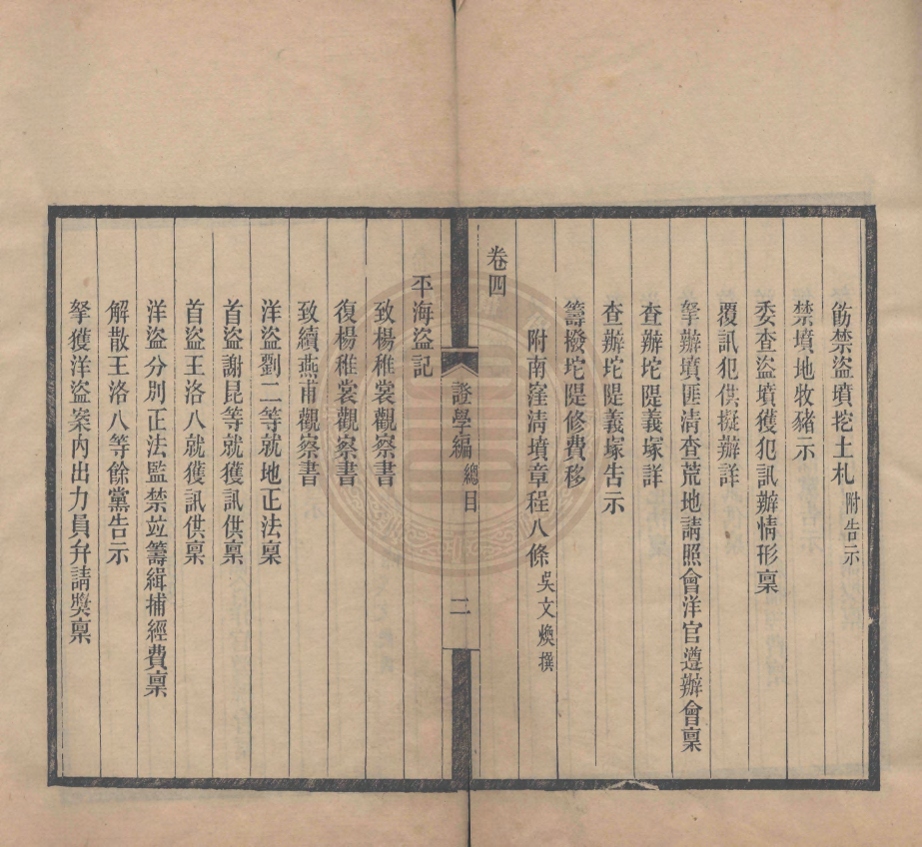 飭禁盜墳挖土札 附告示
禁墳地牧豬示
委查盜墳獲犯訊辦情形稟
覆訊犯供擬辦詳
拏辦墳匪清查荒地請照會洋官遵辦會稟
查辦坨隄義塚詳
查辦坨隄義塚告示
籌撥坨隄修費移
附南窪清墳章程八條 吳文煥撰
卷四
證學編 總目 二
平海盜記
致楊稚裳觀察書
復楊稚裳觀察書
致續燕甫觀察書
洋盜劉二等就地正法稟
首盜謝昆等就獲訊供稟
首盜王洛八就獲訊供稟
洋盜分別正法監禁竝籌緝捕經費稟
解散王洛八等餘黨告示
拏獲洋盜案內出力員弁請獎稟